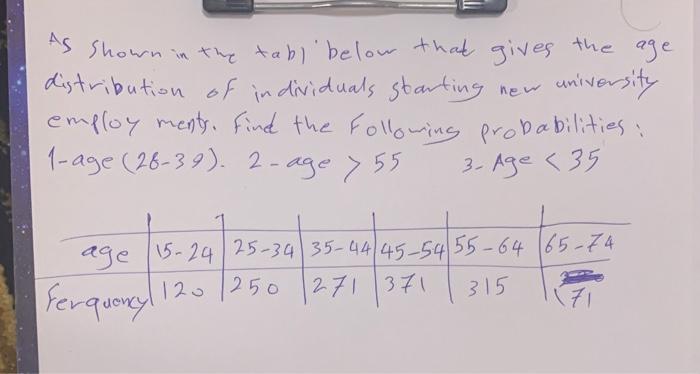 As shown in the tabl below that gives the age
distribution of individuals starting new university
employ ments. find the following probabilities:
1-age (28-39). 2-age > 55 3- Age < 35
age 15-24 25-34 35-44 45-54 55-64 65-74
ferquency 120 250 271 371 315 171